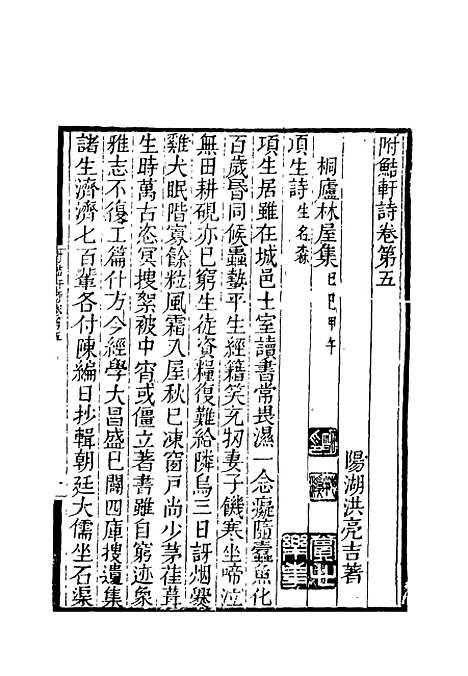 附鮚軒詩卷第五
陽湖洪亮吉著
桐廬林屋集 巳甲午
項生詩 生名
項生居雖在城邑土室讀書常畏濕一念癡隨蠹魚化
百歲昏同候蟲蟄平生經籍笑充牣妻子饑寒坐啼泣
無田耕硯亦巳窮生徒資糧復難給隣烏三日訝烟爨
雞犬眠階寡餘粒風霜入屋秋巳凍窗戸尚少茅茬葺
生時萬古恣冥搜絮被中宵或僵立著書雖自窮迹象
雅志不復工篇什方今經學大昌盛巳闢四庫搜遺集
諸生濟濟七百輩各付陳編日抄輯朝廷大儒坐石渠